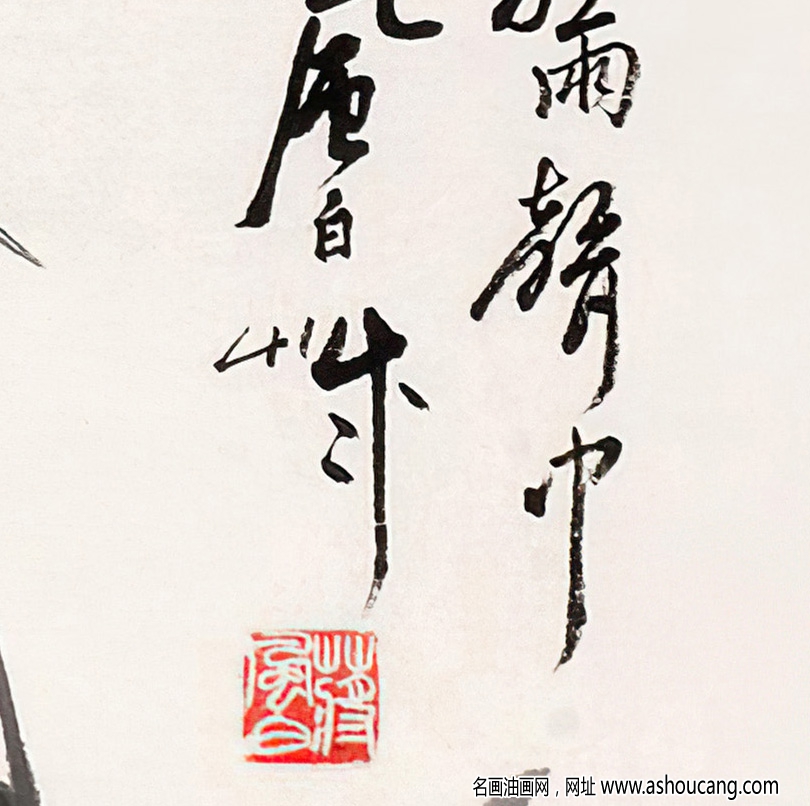 雨聲中
風白
蔣風白
名画油画网，网址 www.ashoucang.com